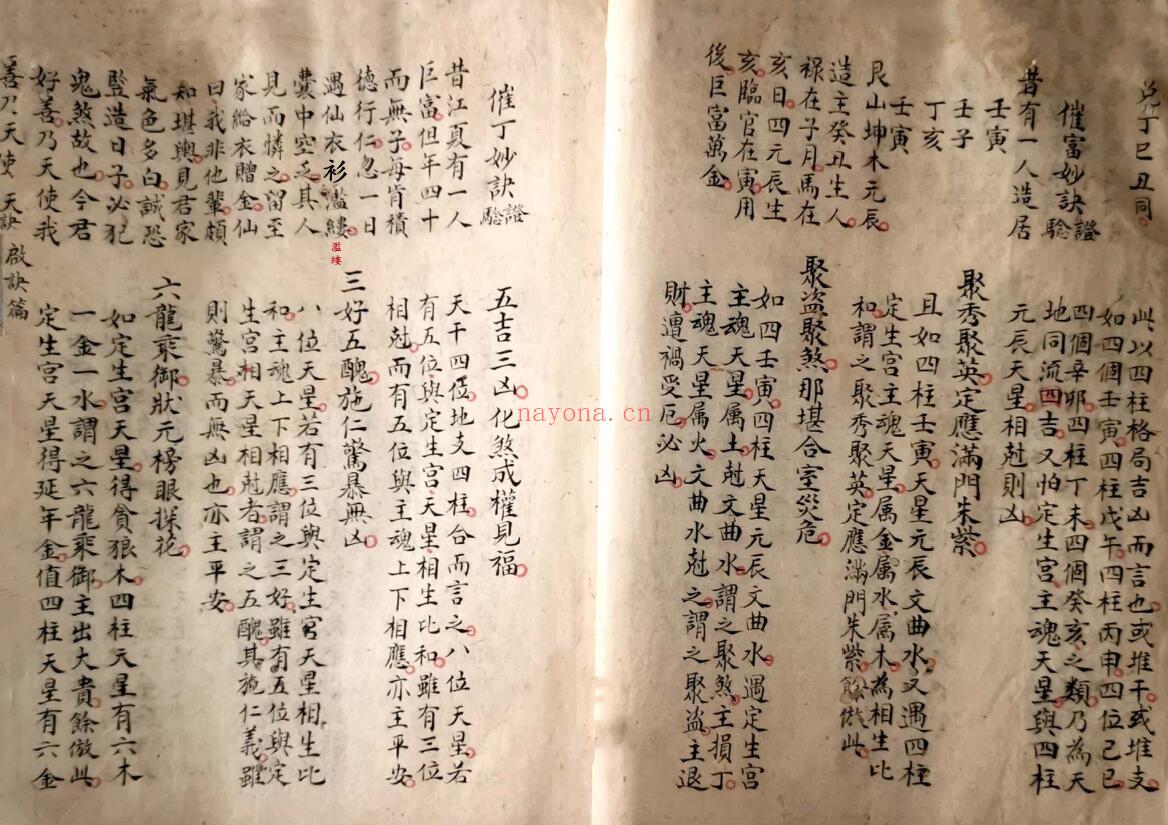 兌丁巳丑同
催富妙訣證驗
昔有一人造居
壬寅
壬子
丁亥
壬寅
艮山坤木元辰
造主癸丑生人
祿在子月馬在
亥日四元辰生
亥臨官在寅用
後巨富萬金
此以四柱格局吉凶而言也或堆干或堆支
如四個壬寅四柱戊午四柱丙申四位己巳
四個辛卯四柱丁未四個癸亥之類乃為天
地同流四吉又怕定生宮主魂天星與四柱
元辰天星相尅則凶
聚秀聚英定應滿門朱紫
且如四柱壬寅天星元辰文曲水又遇四柱
定生宮主魂天星属金属水属木為相生比
和謂之聚秀聚英定應滿門朱紫餘倣此
聚盜聚煞那堪合室災危
如四壬寅四柱天星元辰文曲水遇定生宮
主魂天星属土尅文曲水謂之聚煞主損丁
主魂天星属火文曲水尅之謂之聚盜主退
財遭禍受厄必凶
催丁妙訣證驗
昔江夏有一人
巨富但年四十
而無子每肯積
德行仁忽一日
遇仙衣衫濫縷
濫縷
囊中空乏其人
見而憐之留至
家給衣贈金仙
曰我非他輩頗
知堪輿見君家
氣色多白誠恐
豎造日子必犯
鬼煞故也今君
好善乃天使我
善乃天使 天訣
啟訣篇
五吉三凶化煞成權見福
天干四位地支四柱合而言之八位天星若
有五位與定生宮天星相生比和雖有三位
相尅而有五位與主魂上下相應亦主平安
三好五醜施仁驚暴無凶
八位天星若有三位與定生宮天星相生比
和主魂上下相應謂之三好雖有五位與定
生宮相天星相尅者謂之五醜其施仁義雖
則驚暴而無凶也亦主平安
六龍乘御狀元榜眼探花
如定生宮天星得貪狼木四柱天星有六木
一金一水謂之六龍乘御主出大貴餘倣此
定生宮天星得延年金值四柱天星有六金
nayona.cn